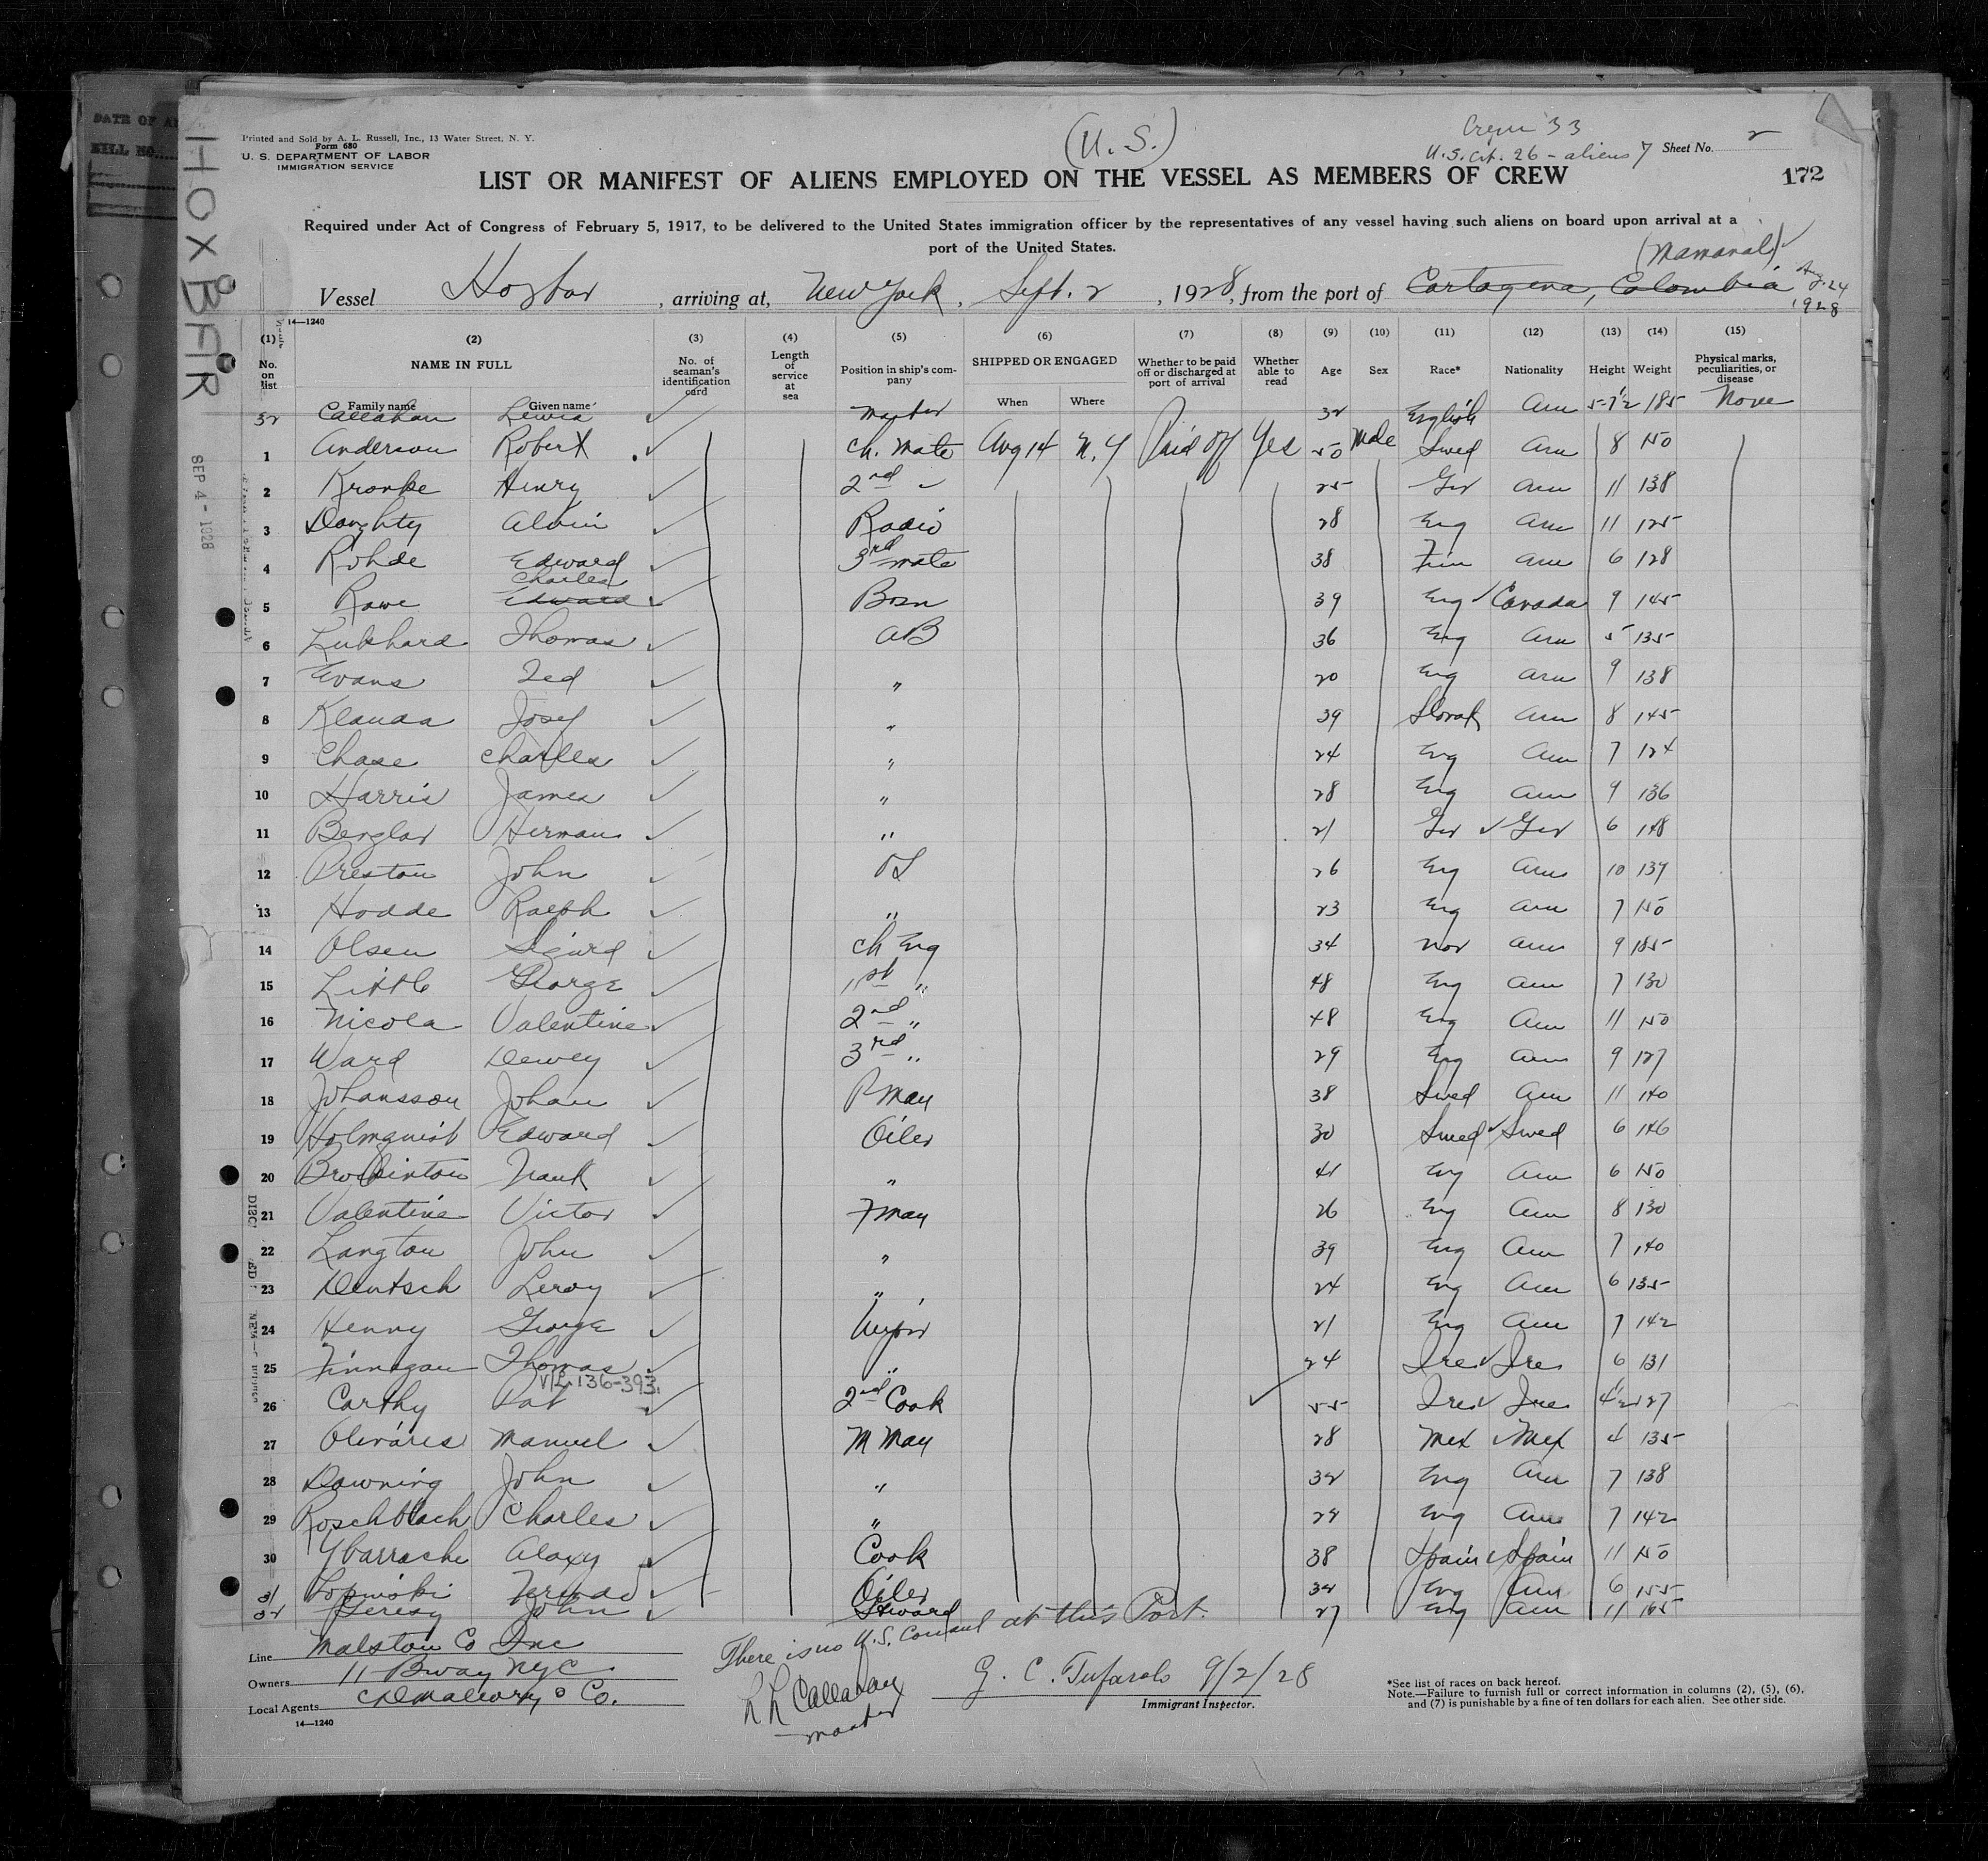 Printed and Sold by A. L. Russell, Inc., 13 Water Street, N. Y.
Form 680
U. S. DEPARTMENT OF LABOR
IMMIGRATION SERVICE
(U. S.)
Crew 33
U.S. cit. 26 - aliens 7
Sheet No. 2
LIST OR MANIFEST OF ALIENS EMPLOYED ON THE VESSEL AS MEMBERS OF CREW
172
Required under Act of Congress of February 5, 1917, to be delivered to the United States immigration officer by the representatives of any vessel having such aliens on board upon arrival at a
port of the United States.
(Mamonal)
Vessel Hoxbar, arriving at, New York, Sept. 2, 1928, from the port of Cartagena, Colombia Aug. 24 1928
HOXBAR
SEP 4 - 1928
14—1240
(1) (2) (3) (4) (5) (6) (7) (8) (9) (10) (11) (12) (13) (14) (15)
No. on list NAME IN FULL No. of seaman's identification card Length of service at sea Position in ship's company SHIPPED OR ENGAGED Whether to be paid off or discharged at port of arrival Whether able to read Age Sex Race* Nationality Height Weight Physical marks, peculiarities, or disease
Family name Given name When Where
32 Callahan Lewis Master 32 English Am 5-7½ 185 None
1 Anderson Robert Ch. Mate Aug 14 N.Y Paid off Yes 50 Male Swed Am 8 150
2 Kronke Henry 2nd 25 Ger Am 11 138
3 Doughty Alvin Radio 28 Eng Am 11 125
4 Rohde Edward 3rd mate 38 Fin Am 6 128
5 Rowe Charles Edward Bosn 39 Eng Canada 9 145
6 Lukhard Thomas AB 36 Eng Am 5 135
7 Evans Ted " 20 Eng Am 9 138
8 Klauda Josef " 39 Slovak Am 8 145
9 Chase Charles " 24 Eng Am 7 124
10 Harris James " 28 Eng Am 9 136
11 Berglar Herman " 21 Ger Ger 6 148
12 Preston John OS 26 Eng Am 10 139
13 Hodde Ralph " 23 Eng Am 7 150
14 Olsen Sigurd Ch Eng 34 Nor Am 9 185
15 Little George 1st " 48 Eng Am 7 130
16 Nicola Valentine 2nd " 48 Eng Am 11 150
17 Ward Dewey 3rd " 29 Eng Am 9 127
18 Johansson Johan P man 38 Swed Am 11 140
19 Holmquist Edward Oiler 30 Swed Swed 6 146
20 Brockinton Frank " 41 Eng Am 6 150
21 Valentine Victor F man 26 Eng Am 8 130
22 Langton John " 39 Eng Am 7 140
23 Deutsch Leroy " 24 Eng Am 6 135
24 Henny George Wiper 21 Eng Am 7 142
25 Finnegan Thomas " 24 Ire Ire 6 131
V/L 136-393
26 Carthy Pat 2nd Cook 55 Ire Ire 4½ 127
27 Olivares Manuel M Man 28 Mex Mex 4 135
28 Downing John " 32 Eng Am 7 138
29 Roschblach Charles " 22 Eng Am 7 142
30 Ybarrache Cook 38 Spain Spain 11 150
31 Oiler 32 Eng Am 6 155
32 John Steward 27 Eng Am 11 165
Line Malston Co Inc
Owners 11 Bway NYC
Local Agents & Co.
14—1240
There is no U.S. Consul at this Port.
Callahan
Master
G. C. Tufarolo 9/2/28
Immigrant Inspector.
*See list of races on back hereof.
Note.—Failure to furnish full or correct information in columns (2), (5), (6),
and (7) is punishable by a fine of ten dollars for each alien. See other side.